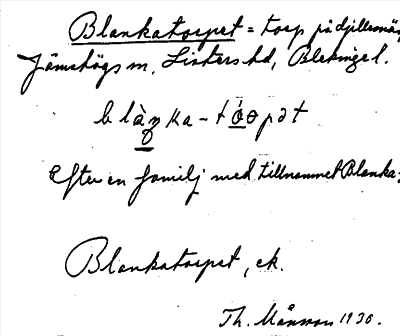 Blankatorpet = torp på Djillesmåg
Jämshögs sn, Listers hd, Blekinge l.
blàŋka-tóopət
Efter en familj med tillnamnet Blanka.
Blankatorpet, ek.
Th. Månsson 1930.